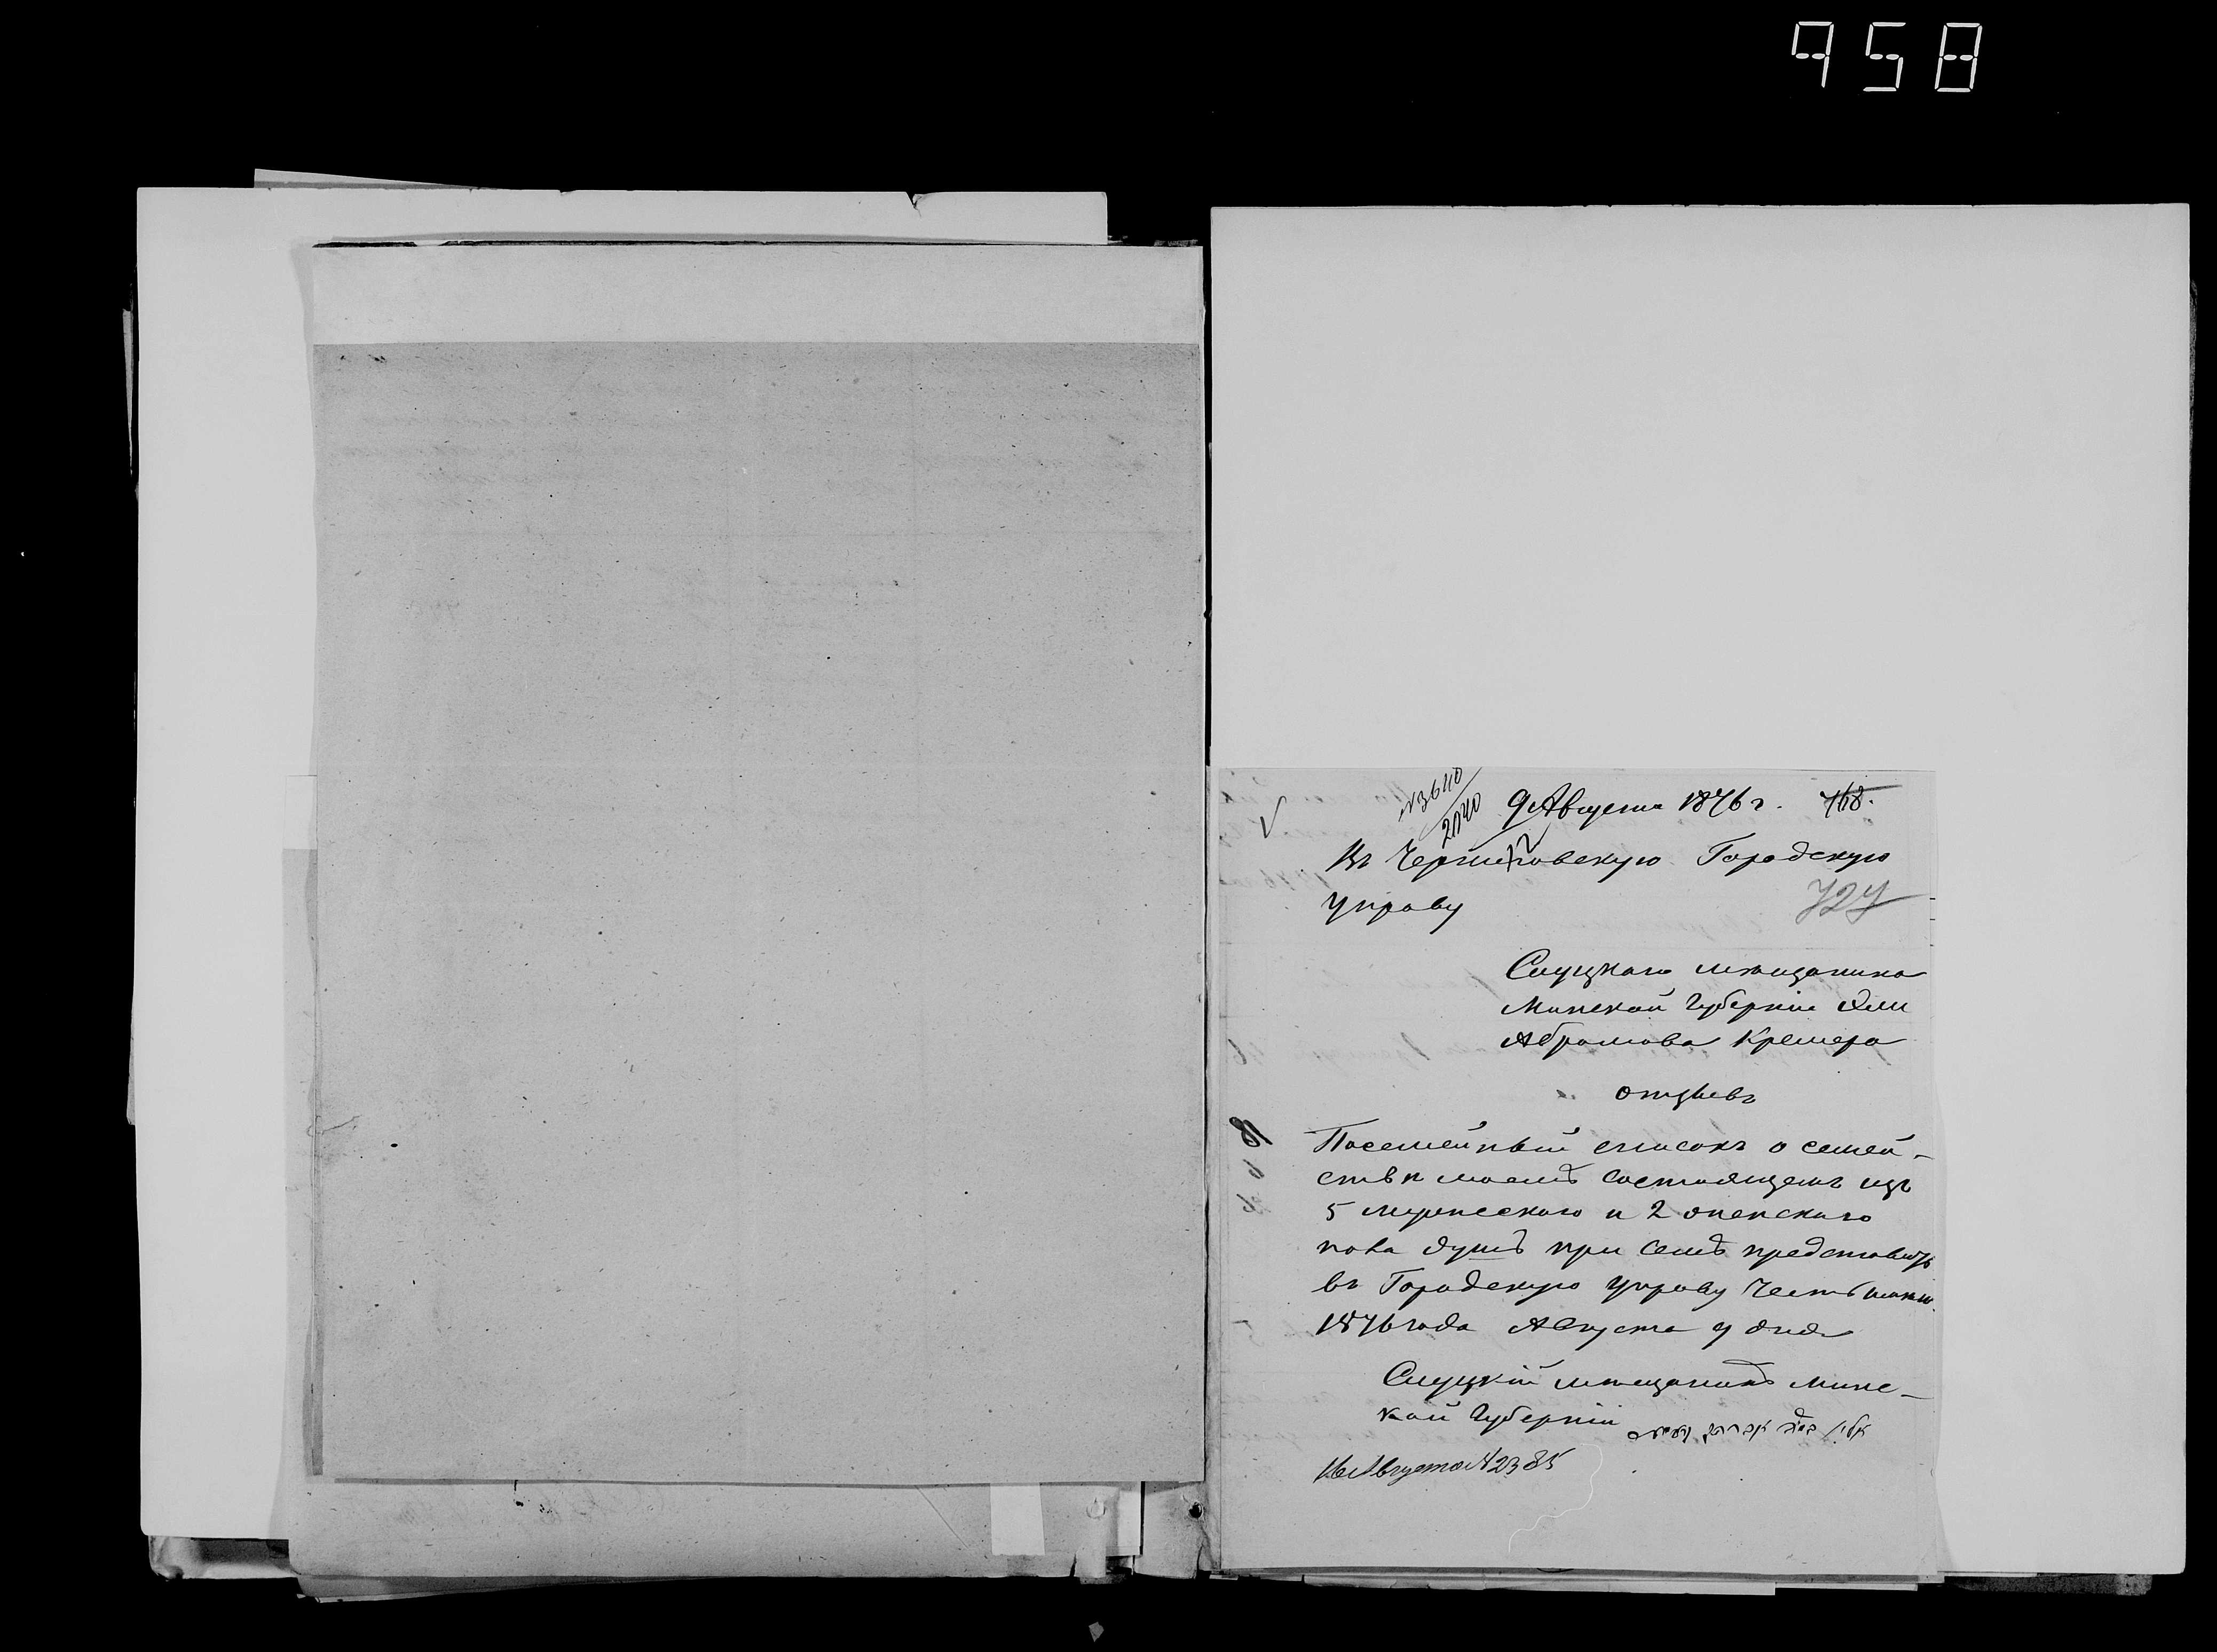 958
№ 3640
2040
9 Августа 1876 г. 768.
Въ Черниговскую Городскую
Управу
727
Слуцкаго мѣщанина
Минской Губерніи
Абрамова Кремера
отзывъ
Посемейный списокъ о семей-
ствѣ моемъ состоящемъ изъ
5 мужескаго и 2 женскаго
пола душъ при семъ представить
въ Городскую Управу честь имѣю.
1876 года Августа 9 дня
Слуцкій мѣщанинъ Минс-
кой Губерніи
Августа № 2385